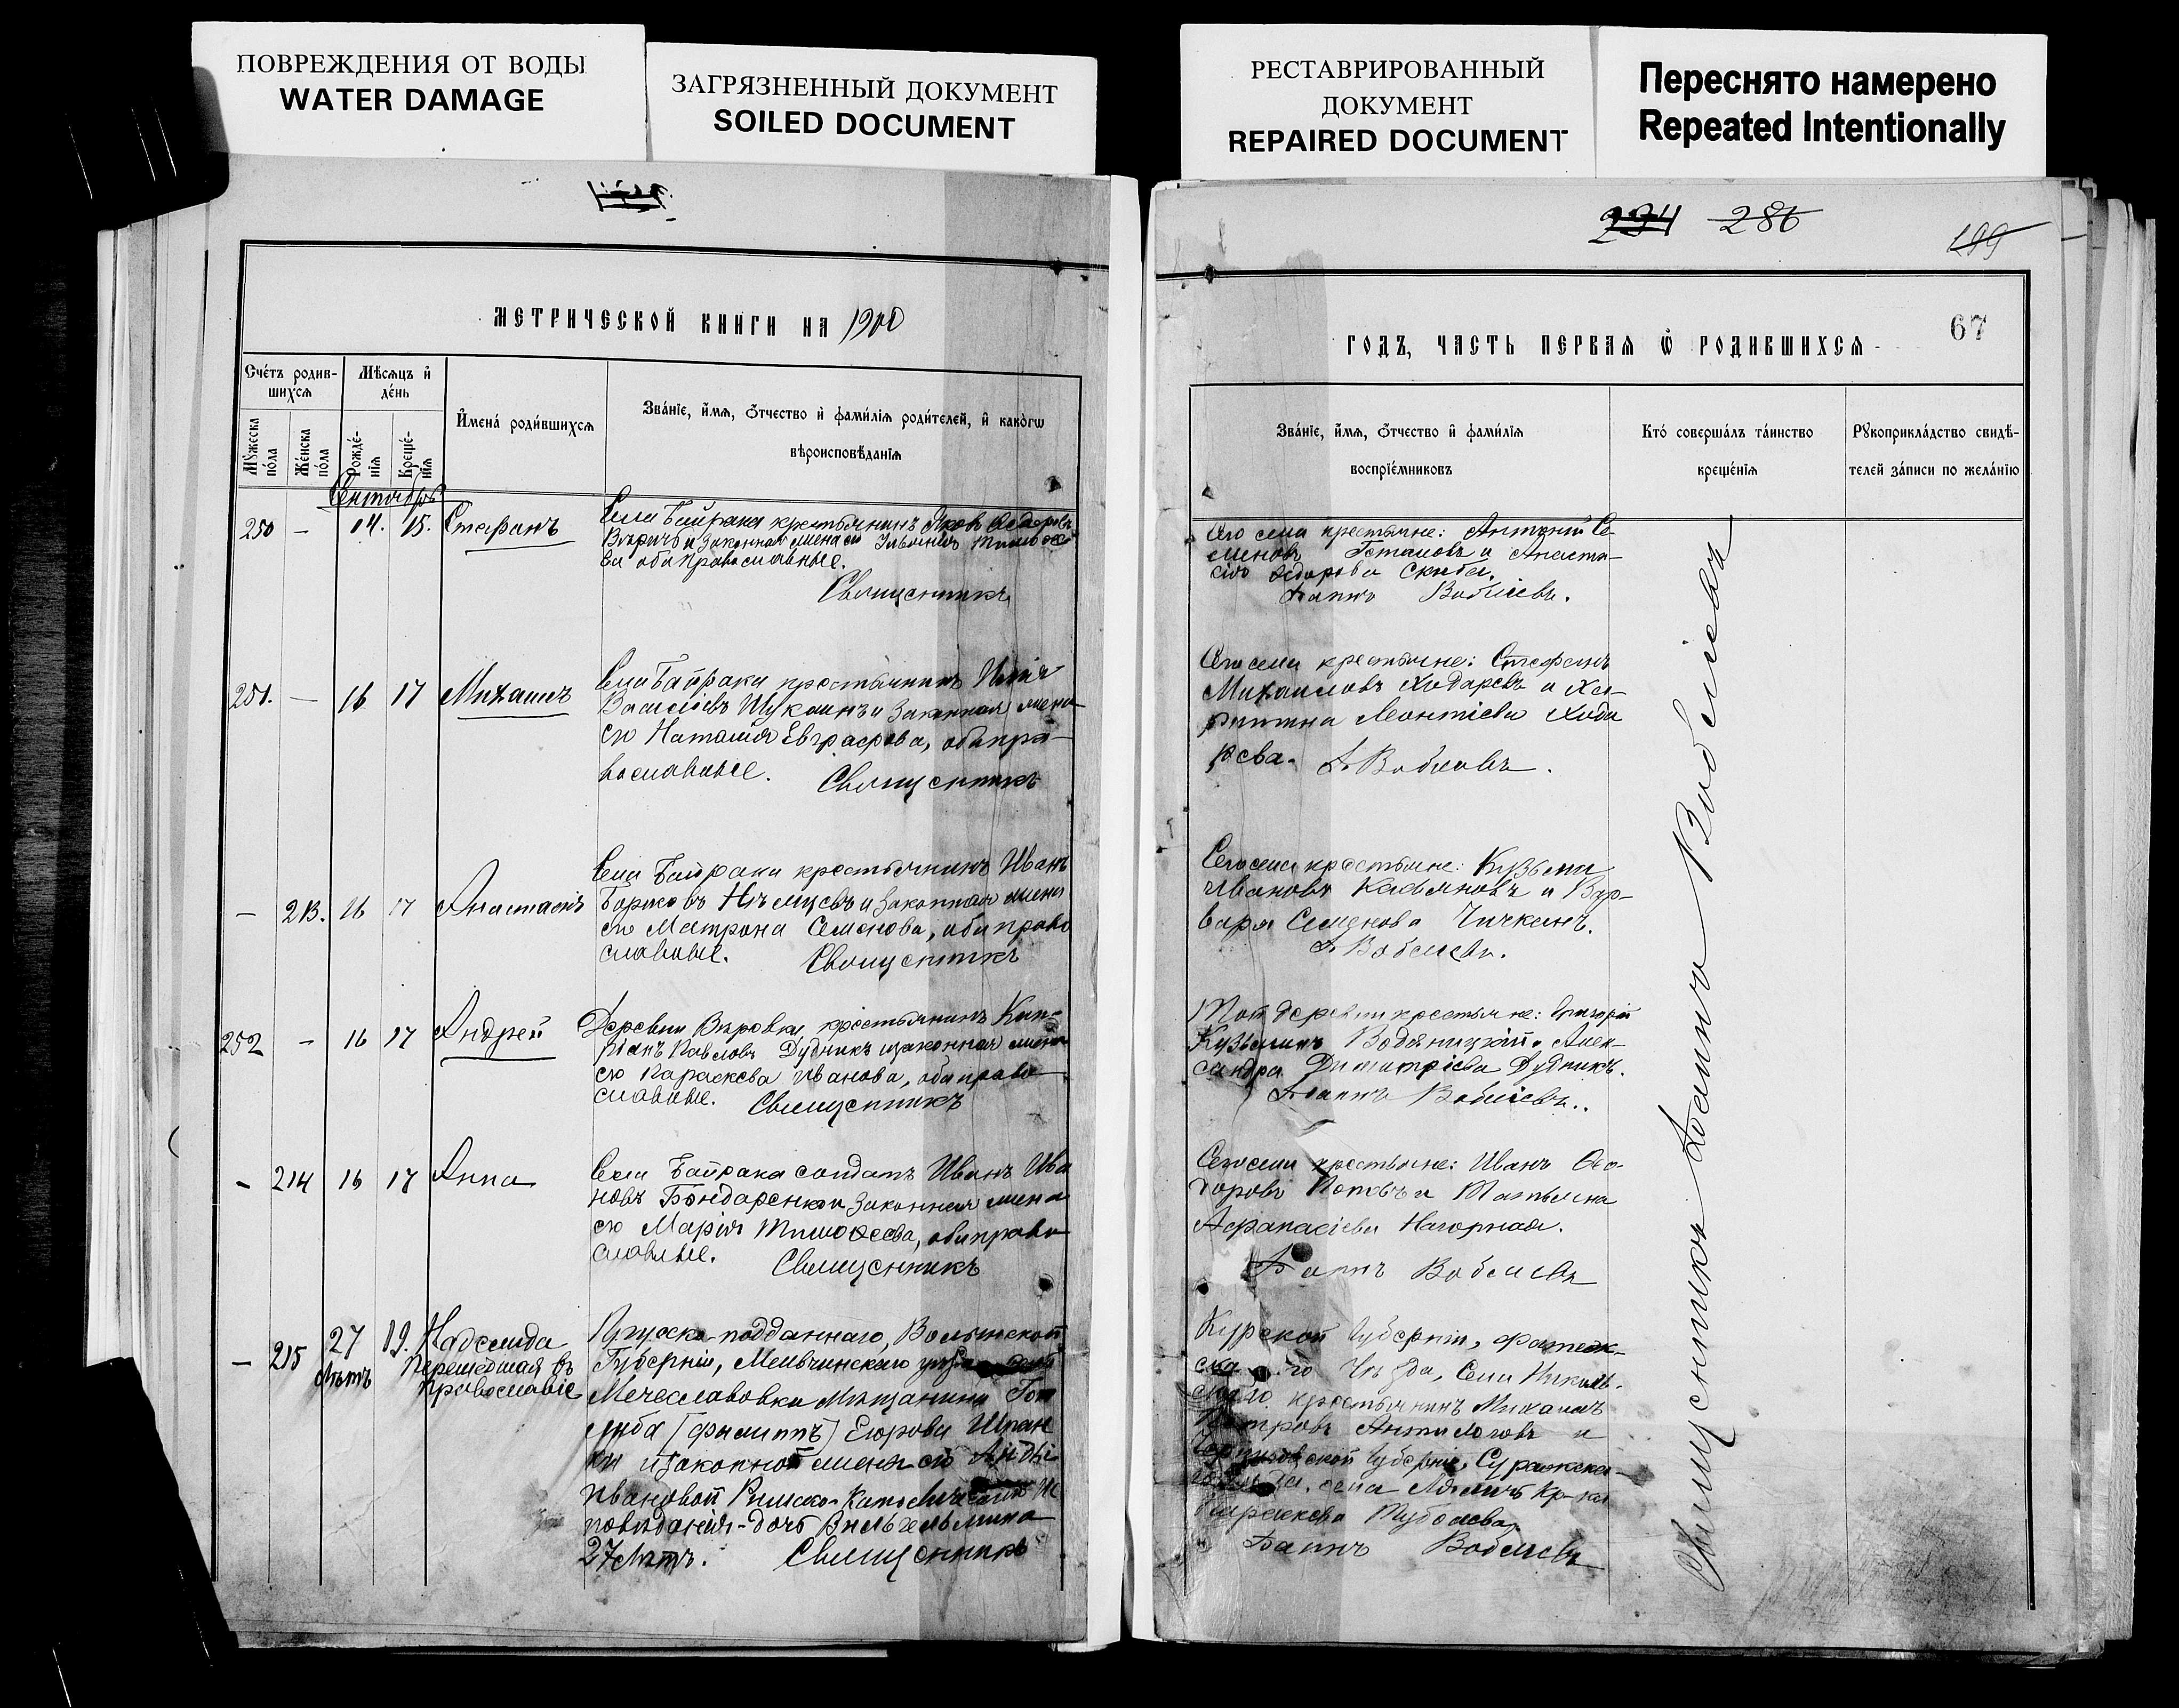 ПОВРЕЖДЕНИЯ ОТ ВОДЫ
WATER DAMAGE
ЗАГРЯЗНЕННЫЙ ДОКУМЕНТ
SOILED DOCUMENT
РЕСТАВРИРОВАННЫЙ
ДОКУМЕНТ
REPAIRED DOCUMENT
Переснято намерено
Repeated Intentionally
МЕТРИЧЕСКОЙ КНИГИ НА 1900
Счéтъ родив-
шихсѧ
Мѣсѧцъ и҆
дéнь
Мꙋ́жеска
пóла
Же́нска
пóла
Рождé-
нїѧ
Креще́-
нїѧ
И҆менá роди́вшихсѧ
Звáнїе, и҆́мѧ, ѻ҆́тчество и҆ фами́лїѧ роди́телей, и҆ какóгѡ
вѣроисповѣ́данїѧ
Сентябрь
250 — 14. 15. Стефанъ
Села Байрака крестьянинъ Яковъ Ѳедоровъ
и законная жена его Тимоѳе-
ва оба православные.
Священникъ
251. — 16 17 Михаилъ
Села Байрака крестьянинъ Илія
Василіевъ Шукаинъ и законная жена
его Наталія Евграфова, оба пра-
вославные. Священникъ
— 213. 16 17 Анастасія
Села Байрака крестьянинъ Иванъ
Нѣмцевъ и законная жена
его Матрона Семенова, оба право
славные. Священникъ
252 — 16 17 Андрей
Деревни Вировки крестьянинъ Кип-
ріанъ Павловъ Дудникъ и законная жена
его Параскева Иванова, оба право
славные. Священникъ
— 214 16 17 Анна
Села Байрака солдатъ Иванъ Ива
новъ Бондаренко и законная жена
его Марія Тимоѳеева, оба право
славные. Священникъ
— 215 27 лѣтъ 19. Надежда
Перешедшая въ
Православіе
Прусско-подданнаго, Волынской
Губерніи,
Мечеславовки мѣщанина Гот
либа (Филиппъ) Егорова Шпан
ки и законной жены его
Ивановой Римско-Католическаго ис
повѣданія - дочь Вильгельмина
27 лѣтъ. Священникъ
234 286
199
67
ГОДЪ, ЧАСТЬ ПЕРВАѦ Ѡ҆ РОДИВШИХСѦ
Звáнїе, и҆́мѧ, ѻ҆́тчество и҆ фами́лїѧ
воспрїéмниковъ
Ктó совершáлъ тáинство
креще́нїѧ
Рꙋкоприклáдство свидѣ́-
телей зáписи по желáнїю
Того села крестьяне: Антоній Се-
меновъ Потаповъ и Анаста-
сія Ѳедорова Скиба.
Іоаннъ Вобліевъ.
Того села крестьяне: Стефанъ
Михаиловъ Ходаревъ и Ха-
ритина Леонтіева Хода
рева. І. Вобліевъ.
Того села крестьяне: Кузьма
Ивановъ Касьяновъ и Вар-
вара Семенова Чичканъ.
І. Вобліевъ.
Той деревни крестьяне: Григорій
Кузьминъ Водяницкій и Алек-
сандра Димитріева Дудникъ.
Іоаннъ Вобліевъ.
Того села крестьяне: Иванъ Ѳео-
доровъ Поповъ и Татьяна
Афанасіева Нагорная.
Іоаннъ Вобліевъ
Курской Губерніи, Фатеж-
скаго Уѣзда, Села Николь-
скаго крестьянинъ Михаилъ
Петровъ Антилоговъ и
Черниговской Губерніи, Суражска-
го уѣзда, села Лялич Кр-ка
Параскева Туболева,
Іоаннъ Вобліевъ
Священникъ Іоаннъ Вобліевъ